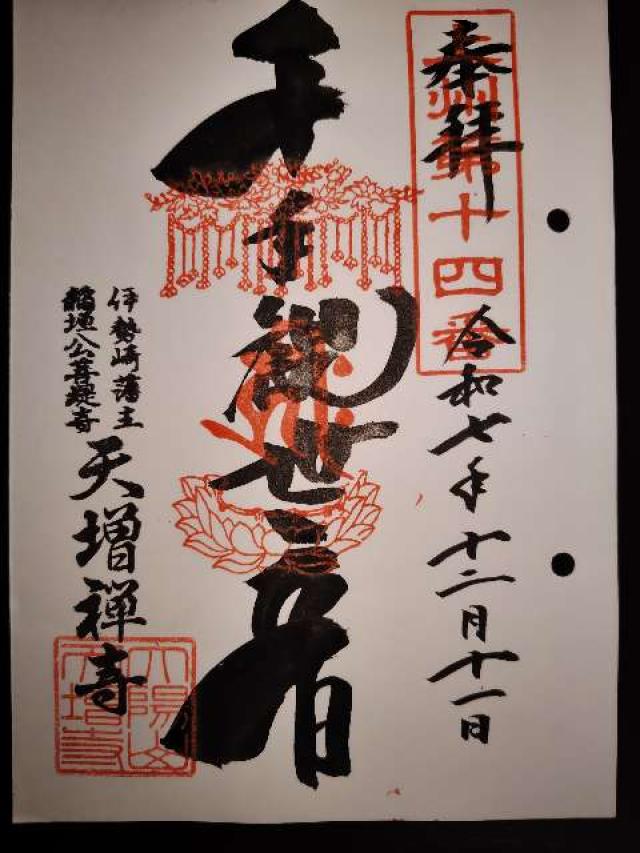 奉拝
州第十四番
令和七年十二月十一日
千手観世音
伊勢崎藩主
稲垣公菩提寺
天増禅寺
天増寺